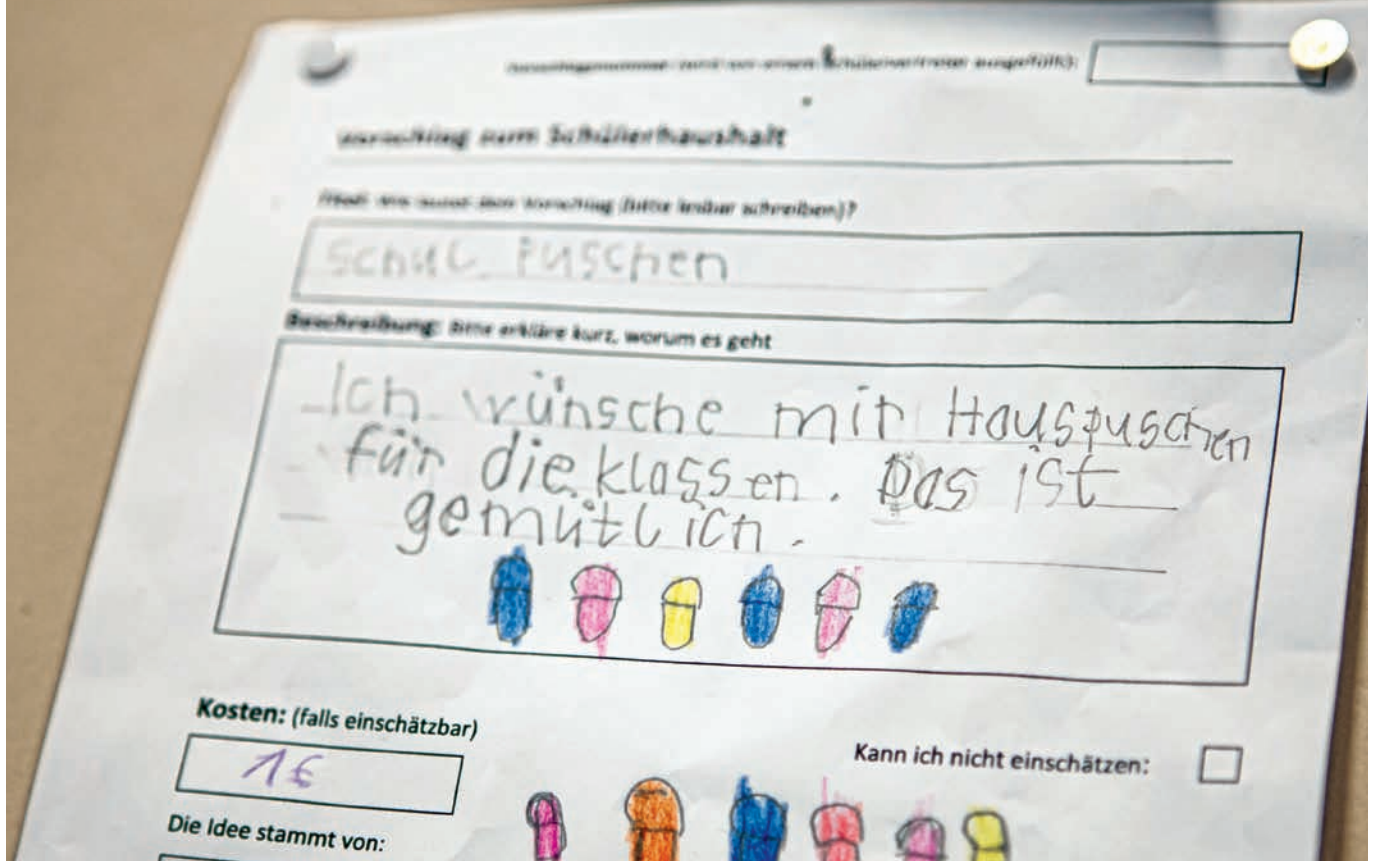 Vorschlagsnummer (wird von einem Schülervertreter ausgefüllt):
Vorschlag zum Schülerhaushalt
Titel: Wie lautet dein Vorschlag (bitte lesbar schreiben)?
Schul Puschen
Beschreibung: Bitte erkläre kurz, worum es geht
Ich wünsche mir Hauspuschen
für die klassen. Das ist
gemütlich.
Kosten: (falls einschätzbar)
1€
Kann ich nicht einschätzen:
Die Idee stammt von: